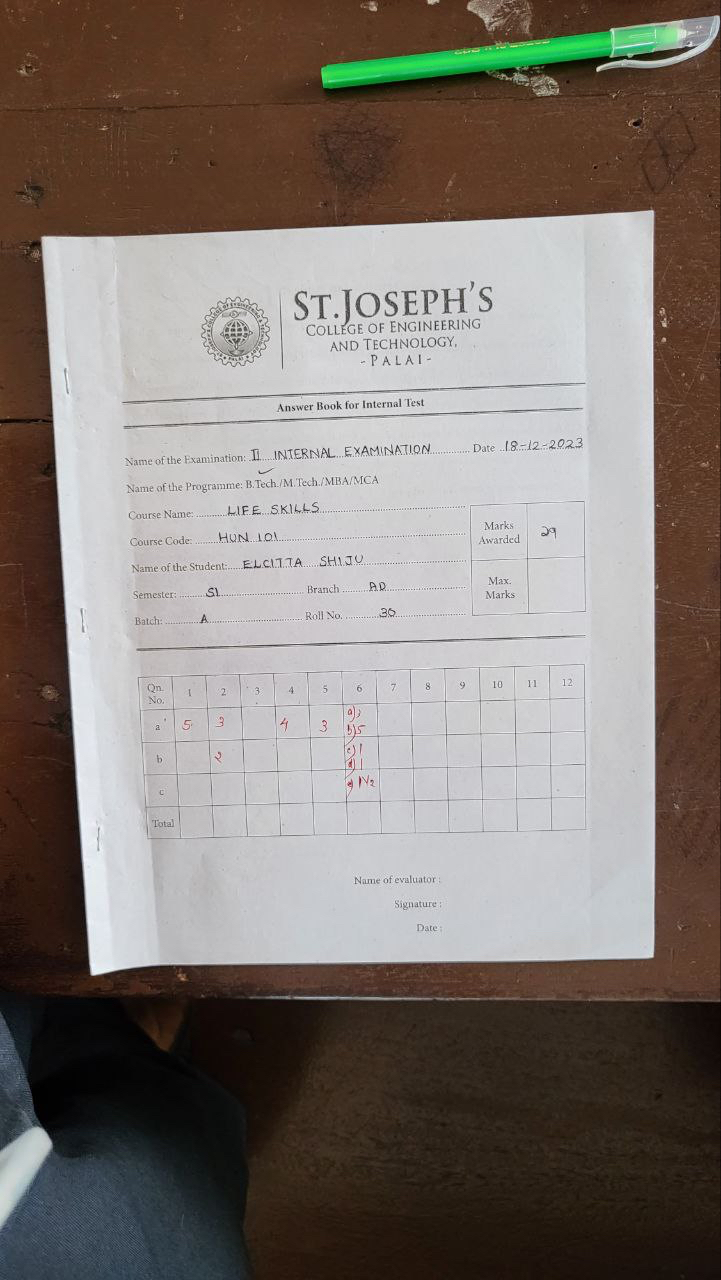 ST.JOSEPH'S
COLLEGE OF ENGINEERING
AND TECHNOLOGY,
- PALAI -
Answer Book for Internal Test
Name of the Examination: II INTERNAL EXAMINATION Date 18-12-2023
Name of the Programme: B.Tech./M.Tech./MBA/MCA
Course Name: LIFE SKILLS
Course Code: HUN 101
Marks Awarded 29
Name of the Student: ELCITTA SHIJU
Semester: S1 Branch AD
Max. Marks
Batch: A Roll No. 30
Qn. No. 1 2 3 4 5 6 7 8 9 10 11 12
a 5 3 4 3 a) b) 5
b 2 c) 1 d) 1
c e) 1 1/2
Total
Name of evaluator :
Signature :
Date :